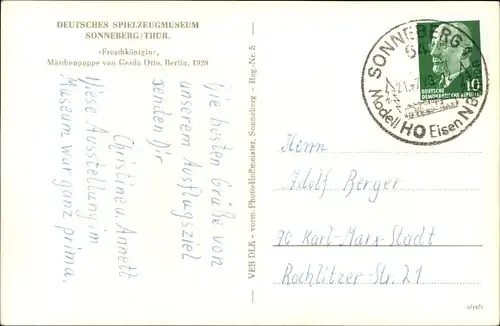 DEUTSCHES SPIELZEUGMUSEUM
SONNEBERG/THUR.
»Froschkönigin«,
Märchenpuppe von Gerda Otto, Berlin, 1928
Die besten Grüße von
unserem Ausflugsziel
senden Dir
Christine u. Annett
Diese Ausstellung im
Museum war ganz prima.
VEB DLK - vorm. Photo-Hoffmeister, Sonneberg - Reg.-Nr. 5
SONNEBERG
Modell HO Eisen
DEUTSCHE
DEMOKRATISCHE
10
Herrn
Adolf Berger
90 Karl-Marx-Stadt
Rochlitzer-Str. 21